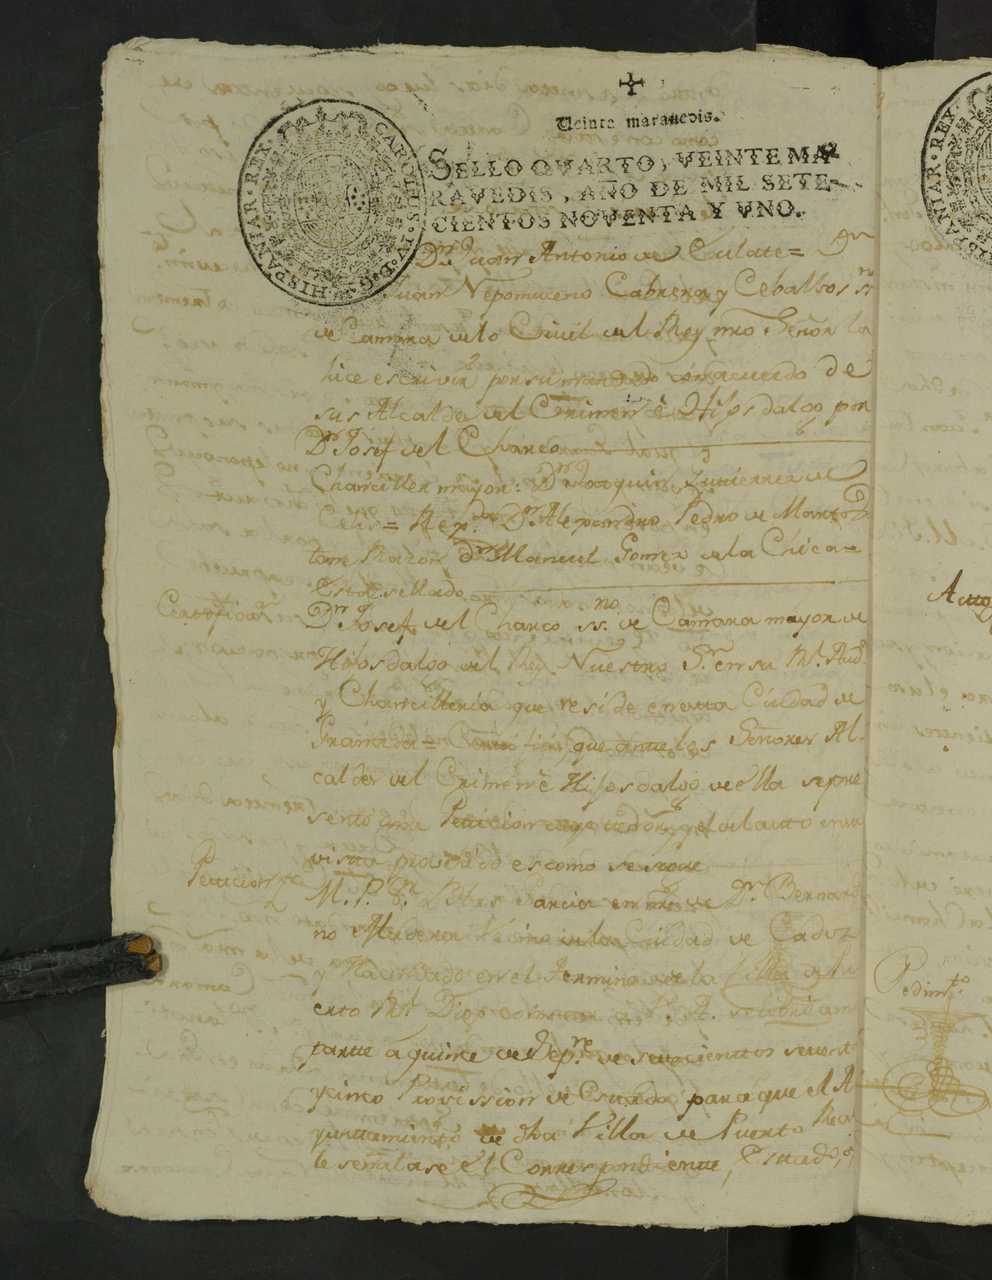 Veinte marauedis.
SELLO QVARTO, VEINTE MA-
RAVEDIS, AÑO DE MIL SETE-
CIENTOS NOVENTA Y VNO.
CAROLUS·IV·D·G·HISPANIAR·REX·
Dn Juan Antonio de Culate=
Juan Nepomuceno Cabrera y Ceballos ss.no
de Camara de lo Civil del Rey nro Señor la
hice escrivir por su mandado con acuerdo de
sus Alcaldes del Crimen è Hijosdalgo por
Dn Josef del Charco
Chanciller mayor: Dn Joaquin Gutierrez de
Celis= Rexdo Dn Alexandro Pedro de Martos
tome Razon dn Manuel Gomez de la Chica=
Está sellado
Certificazn
Dn Josef del Charco ss.no de Camara mayor de
Hijosdalgo del Rey Nuestro Sr en su Rl Audª
y Chancilleria que reside en esta Ciudad de
Granada= Certifico que ante los Señores Al-
caldes del Crimen è Hijosdalgo de ella se pre
sentó una Peticion cuyo tenor, y el del auto en su
visto proveido es como se sigue
Peticion
M. P. S. Blas Garcia en nre de Dn Bernar
no vecino de la Ciudad de Cadiz
y Hacendado en el termino de la Villa de Pu
erto Rl Digo
parte a quince de Sepre de setecientos setent
y cinco Provission de Estado para que el A
yuntamiento de dha Villa de Puerto Rea
le señalase el Correspondiente, Estado,
Auto
Pedimto